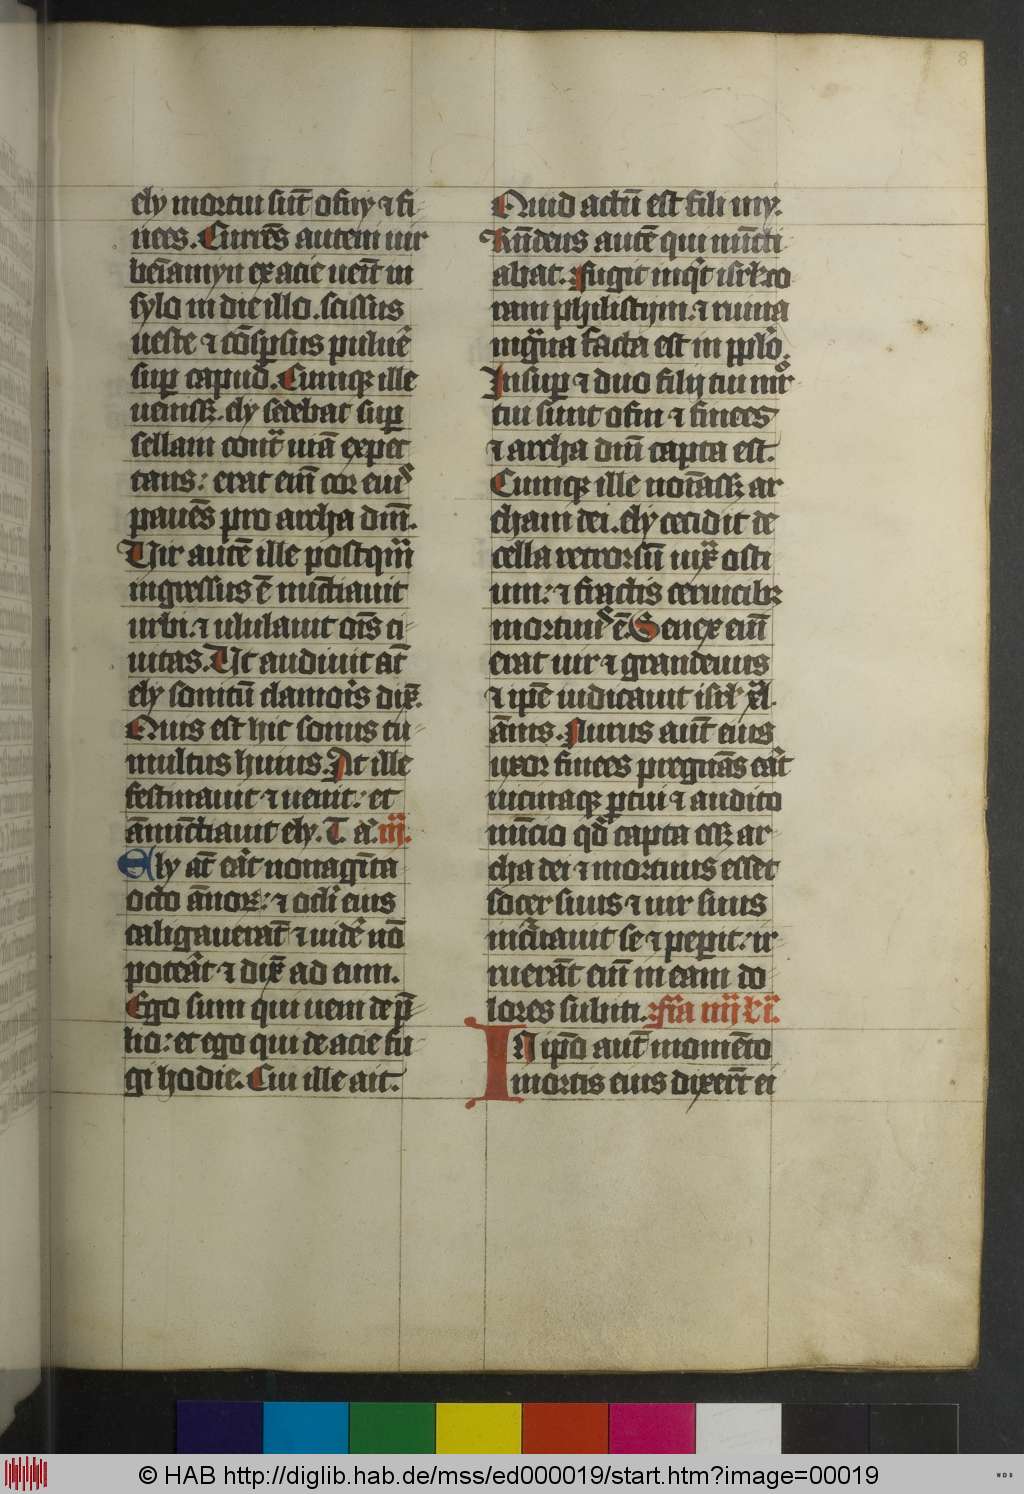 8
ely mortui sūt ofny ⁊ fi-
nees. Currēs autem uir
beīamyn ex acie uēit in
sylo in die illo. scissus
ueste ⁊ cōspsus puluē
sup capud. Cumq ille
uenissꝫ. ely sedebat sup
sellam cont uiā expec
tans: erat eni cor eiꝰ
pauēs pro archa dni.
Uir autē ille postqm
ingressus ē nuntiauit
urbi. ⁊ ululauit ois ci-
uitas. Ut audiuit aūt
ely sonitū clamoris dix.
Quis est hic sonus tu-
multus huius. At ille
festinauit ⁊ uenit: et
ānuntiauit ely. T. a. iij.
Ely aūt erat nonagīta
octo ānoꝝ: ⁊ oculi eius
caligauerāt ⁊ uidē nō
poterat ⁊ dix ad eum.
Ego sum qui ueni de p-
lio: et ego qui de acie fu-
gi hodie. Cui ille ait.
Quid actū est fili my.
Rndens autē qui nūcti
abat. Fugit inqt isrl co-
ram philistym. ⁊ ruina
magna facta est in pplo.
Insup ⁊ duo filij tui mr-
tui sunt ofni ⁊ finees
⁊ archa dni capta est.
Cumq ille noiassꝫ ar
cham dei. ely cecidit de
cella retrorsū iux osti
um: ⁊ fractis ceruicibꝫ
mortuꝰ ē. Senex eni
erat uir ⁊ grandeuus
⁊ ipse iudicauit isrl xl.
ānis. Nurus aūt eius
uxor finees pregnās erat
uicinaq partui ⁊ audito
nūcio qd capta essꝫ ar-
cha dei ⁊ mortuus esset
socer suus ⁊ uir suus
incuruauit se ⁊ peperit: ir-
ruerāt eni in eam do-
lores subiti. fria iiij. l. i.
In ipso aut momēto
mortis eius dixerūt ei
© HAB http://diglib.hab.de/mss/ed000019/start.htm?image=00019